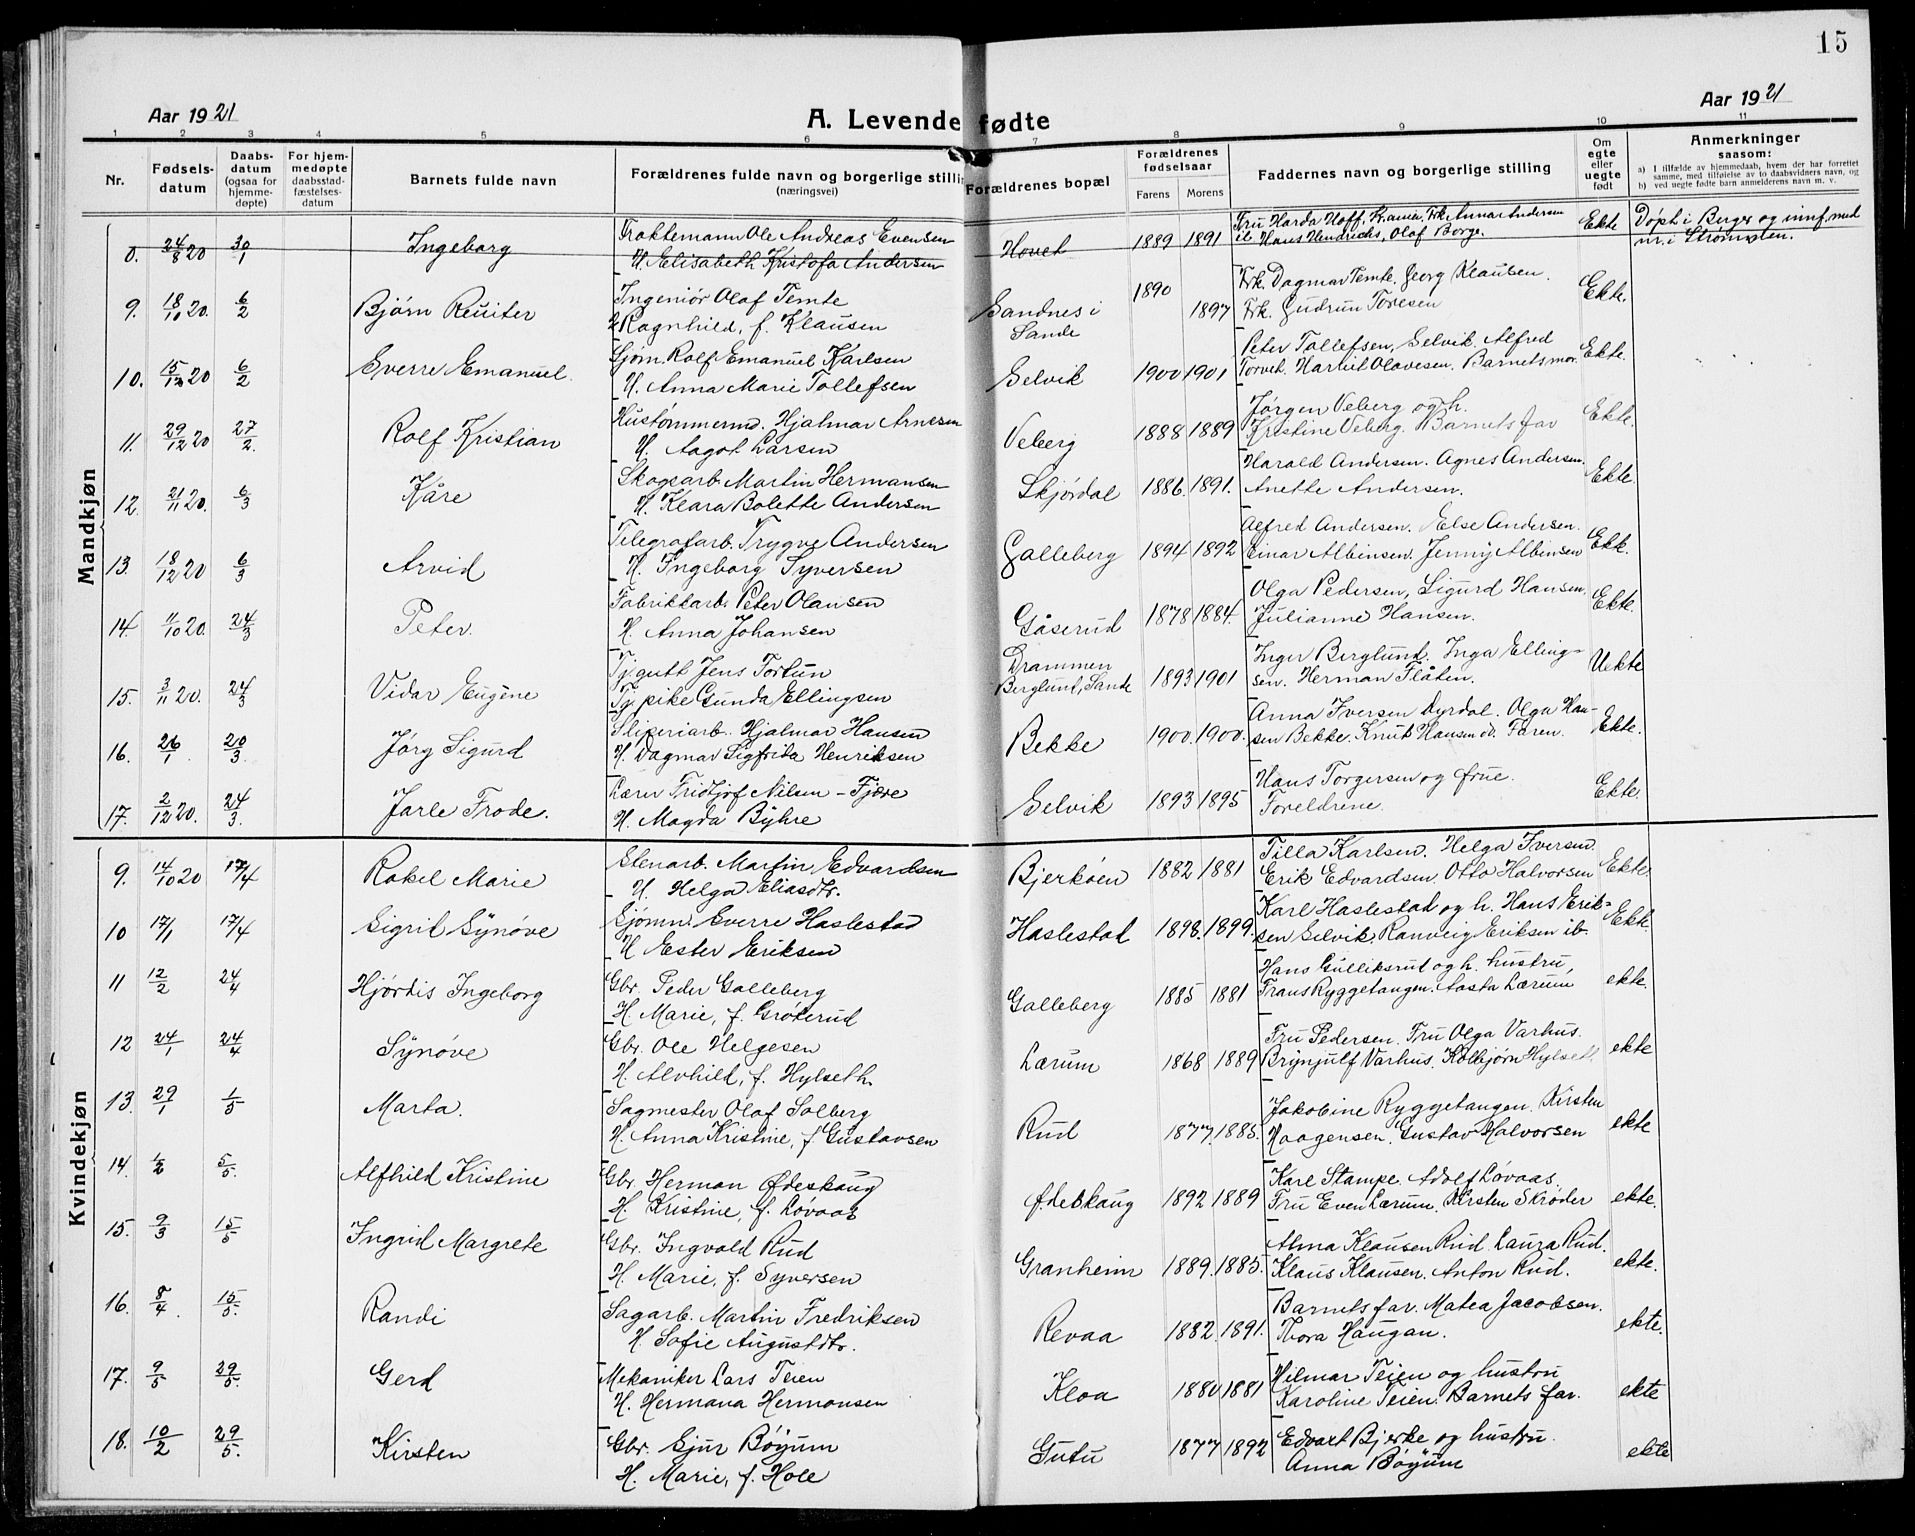 15
Aar 1921
A. Levende fødte
Aar 1921
1 2 3 4 5 6 7 8 9 10 11
Nr.
Fødsels-
datum
Daabs-
datum
(ogsaa for
hjemme-
døpte)
For hjem-
medøpte
daabsstad-
fæstelses-
datum
Barnets fulde navn
Forældrenes fulde navn og borgerlige stilli
(næringsvei)
Forældrenes bopæl
Forældrenes
fødselsaar
Farens Morens
Faddernes navn og borgerlige stilling
Om
egte
eller
uegte
født
Anmerkninger
saasom:
a) I tilfælde av hjemmedaab, hvem der har forrettet
samme, med tilføielse av to daabsvidners navn, og
b) ved uegte fødte barn anmelderens navn m. v.
Mandkjøn
8. 24/8 20 30/1 Ingeborg
Traktemann Ole Andreas Evensen
H. Elisabeth Kristofa Andersen
Hovet 1889 1891
Fru Harda Hoff, Frk Anna Andersen
Hans Hendrichs, Olaf Borge.
Ekte
Døpt i Berger og innf. med
nr. i Strømsten.
9. 18/10 20. 6/2 Bjørn Reuiter
Ingeniør Olaf Temte
H Ragnhild, f. Klausen
Sandnes i
Sande
1890 1897
Frk. Dagmar Temte. Georg Klausen.
Frk. Gudrun Toresen
Ekte.
10. 15/12 20 6/2 Sverre Emanuel.
Sjøm. Rolf Emanuel Karlsen
H. Anna Marie Tollefsen
Selvik 1900 1901
Peter Tollefsen, Selvik. Alfred
Torvet. Harriet Olavesen. Barnets mor.
Ekte.
11. 29/12 20 27/2. Rolf Kristian
Hustømmermd. Hjalmar Arnesen
H. Aagot Larsen
Veberg 1888 1889
Jørgen Veberg og h.
Kristine Veberg. Barnets far
Ekte.
12. 21/11 20. 6/3 Kåre
Skogsarb. Martin Hermansen
H. Klara Bolette Andersen
Skjørdal 1886. 1891.
Harald Andersen. Agnes Andersen.
Anette Andersen.
Ekte.
13. 18/12 20 6/3 Arvid
Telegrafarb. Trygve Andersen
H. Ingeborg Syversen
Galleberg 1894 1892
Alfred Andersen. Else Andersen.
Einar Albinsen. Jenny Albinsen
Ekte.
14. 11/10 20. 24/3 Peter.
Fabrikkarb. Peter Olausen
H. Anna Johansen
Gåserud 1878 1884.
Olga Pedersen, Sigurd Hansen.
Julianne Hansen.
Ekte.
15. 3/11 20. 24/3 Vidar Eugène
Tj.gutt Jens Fortun
Tj. pike Gunda Ellingsen
Drammen
Berglund, Sande
1893 1901
Inger Berglund. Inga Elling-
sen. Herman Flåten.
Uekte
16. 26/1 20/3. Jørg Sigurd
Sliperiarb. Hjalmar Hansen
H. Dagmar Sigfrida Henriksen
Bekke 1900. 1900.
Anna Iversen Dyrdal. Olga Han-
sen Bekke. Knut Hansen od. Faren.
Ekte.
17. 2/12 20. 24/3. Jarle Frode.
Lærer Fridtjof Nilsen - Fjære
H. Magda Byhre
Selvik 1893 1895
Hans Torgersen og frue.
Foreldrene.
Ekte.
Kvindekjøn
9. 14/10 20 17/4 Rakel Marie
Stenarb. Martin Edvardsen
H. Helga Eliasdtr.
Bjerkøen 1882 1881
Tilla Karlsen. Helga Iversen.
Erik Edvardsen. Otto Halvorsen
Ekte.
10 17/1 17/4 Sigrid Synøve
Sjømn. Sverre Haslestad
H Ester Eriksen
Haslestad 1898. 1899.
Karl Haslestad og h. Hans Erik-
sen Selvik, Ranveig Eriksen ib.
Ekte.
11 12/2 24/4 Hjørdis Ingeborg
Gbr. Peder Galleberg
H. Marie, f. Grøterud
Galleberg 1885 1881
Hans Gulliksrud og h. hustru,
Frans Ryggetangen. Aasta Lærum
ekte.
12 24/1 24/4 Synøve
Gbr. Ole Helgesen
H. Alvhild, f. Hylseth.
Lærum 1868 1889
Fru Pedersen. Fru Olga Varhus.
Brynjulf Varhus. Kolbjørn Hylseth
ekte
13. 29/1 1/5 Marta.
Sagmester Olaf Solberg
H. Anna Kristine, f. Gustavsen
Rud 1877. 1885.
Jakobine Ryggetangen. Kirsten
Haagensen. Gustav Halvorsen
ekte
14. 1/2 5/5. Alfhild Kristine
Gbr. Herman Ødeskaug
H. Kristine, f. Løvaas
Ødeskaug 1892 1889
Karl Stampe. Adolf Løvaas.
Fru Even Lærum. Kirsten Skrøder
ekte.
15. 9/3 15/5 Ingrid Margrete
Gbr. Ingvald Rud
H. Marie, f. Syversen
Granheim 1889. 1885.
Alma Klausen Rud. Laura Rud.
Klaus Klausen. Anton Rud.
ekte.
16. 8/4. 15/5. Randi
Sagarb. Martin Fredriksen
H. Sofie Augustdtr.
Revaa 1882. 1891.
Barnets far. Matea Jacobsen.
Thora Haugan.
ekte.
17. 9/5 29/5. Gerd
Mekaniker Lars Teien
H. Hermana Hermansen
Kloa 1880 1881
Hilmar Teien og hustru
Karoline Teien. Barnets far.
ekte
18. 10/2 29/5. Kirsten
Gbr. Sjur Bøyum
H. Marie, f. Hole
Gutu 1877 1892
Edvart Bjerke og hustru.
Anna Bøyum
ekte